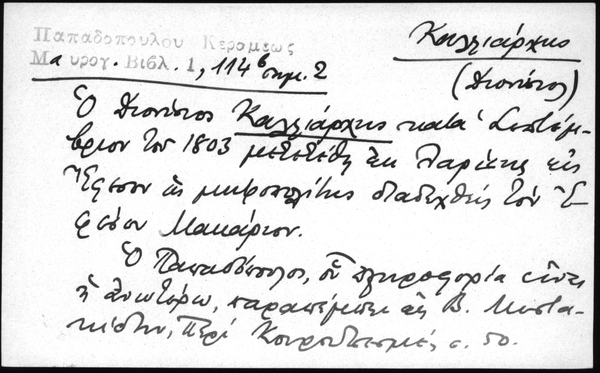 Παπαδοπούλου Κεραμέως
Μαυρογ. Βιβλ. 1, 114β σημ. 2
Καλλιάρχης
(Διονύσιος)
Ὁ Διονύσιος Καλλιάρχης κατὰ Σεπτέμ-
βριον τοῦ 1803 μετετέθη ἐκ Λαρίσης εἰς
Ἔφεσον ὡς μητροπολίτης διαδεχθεὶς τὸν Ἐ-
φέσου Μακάριον.
Ὁ Παπαδόπουλος, οὗ πληροφορία εἶναι
ἡ ἀνωτέρω, παραπέμπει εἰς Β. Μυστα-
κίδην, Περὶ Κουρουτσεσμὲ, σ. 50.